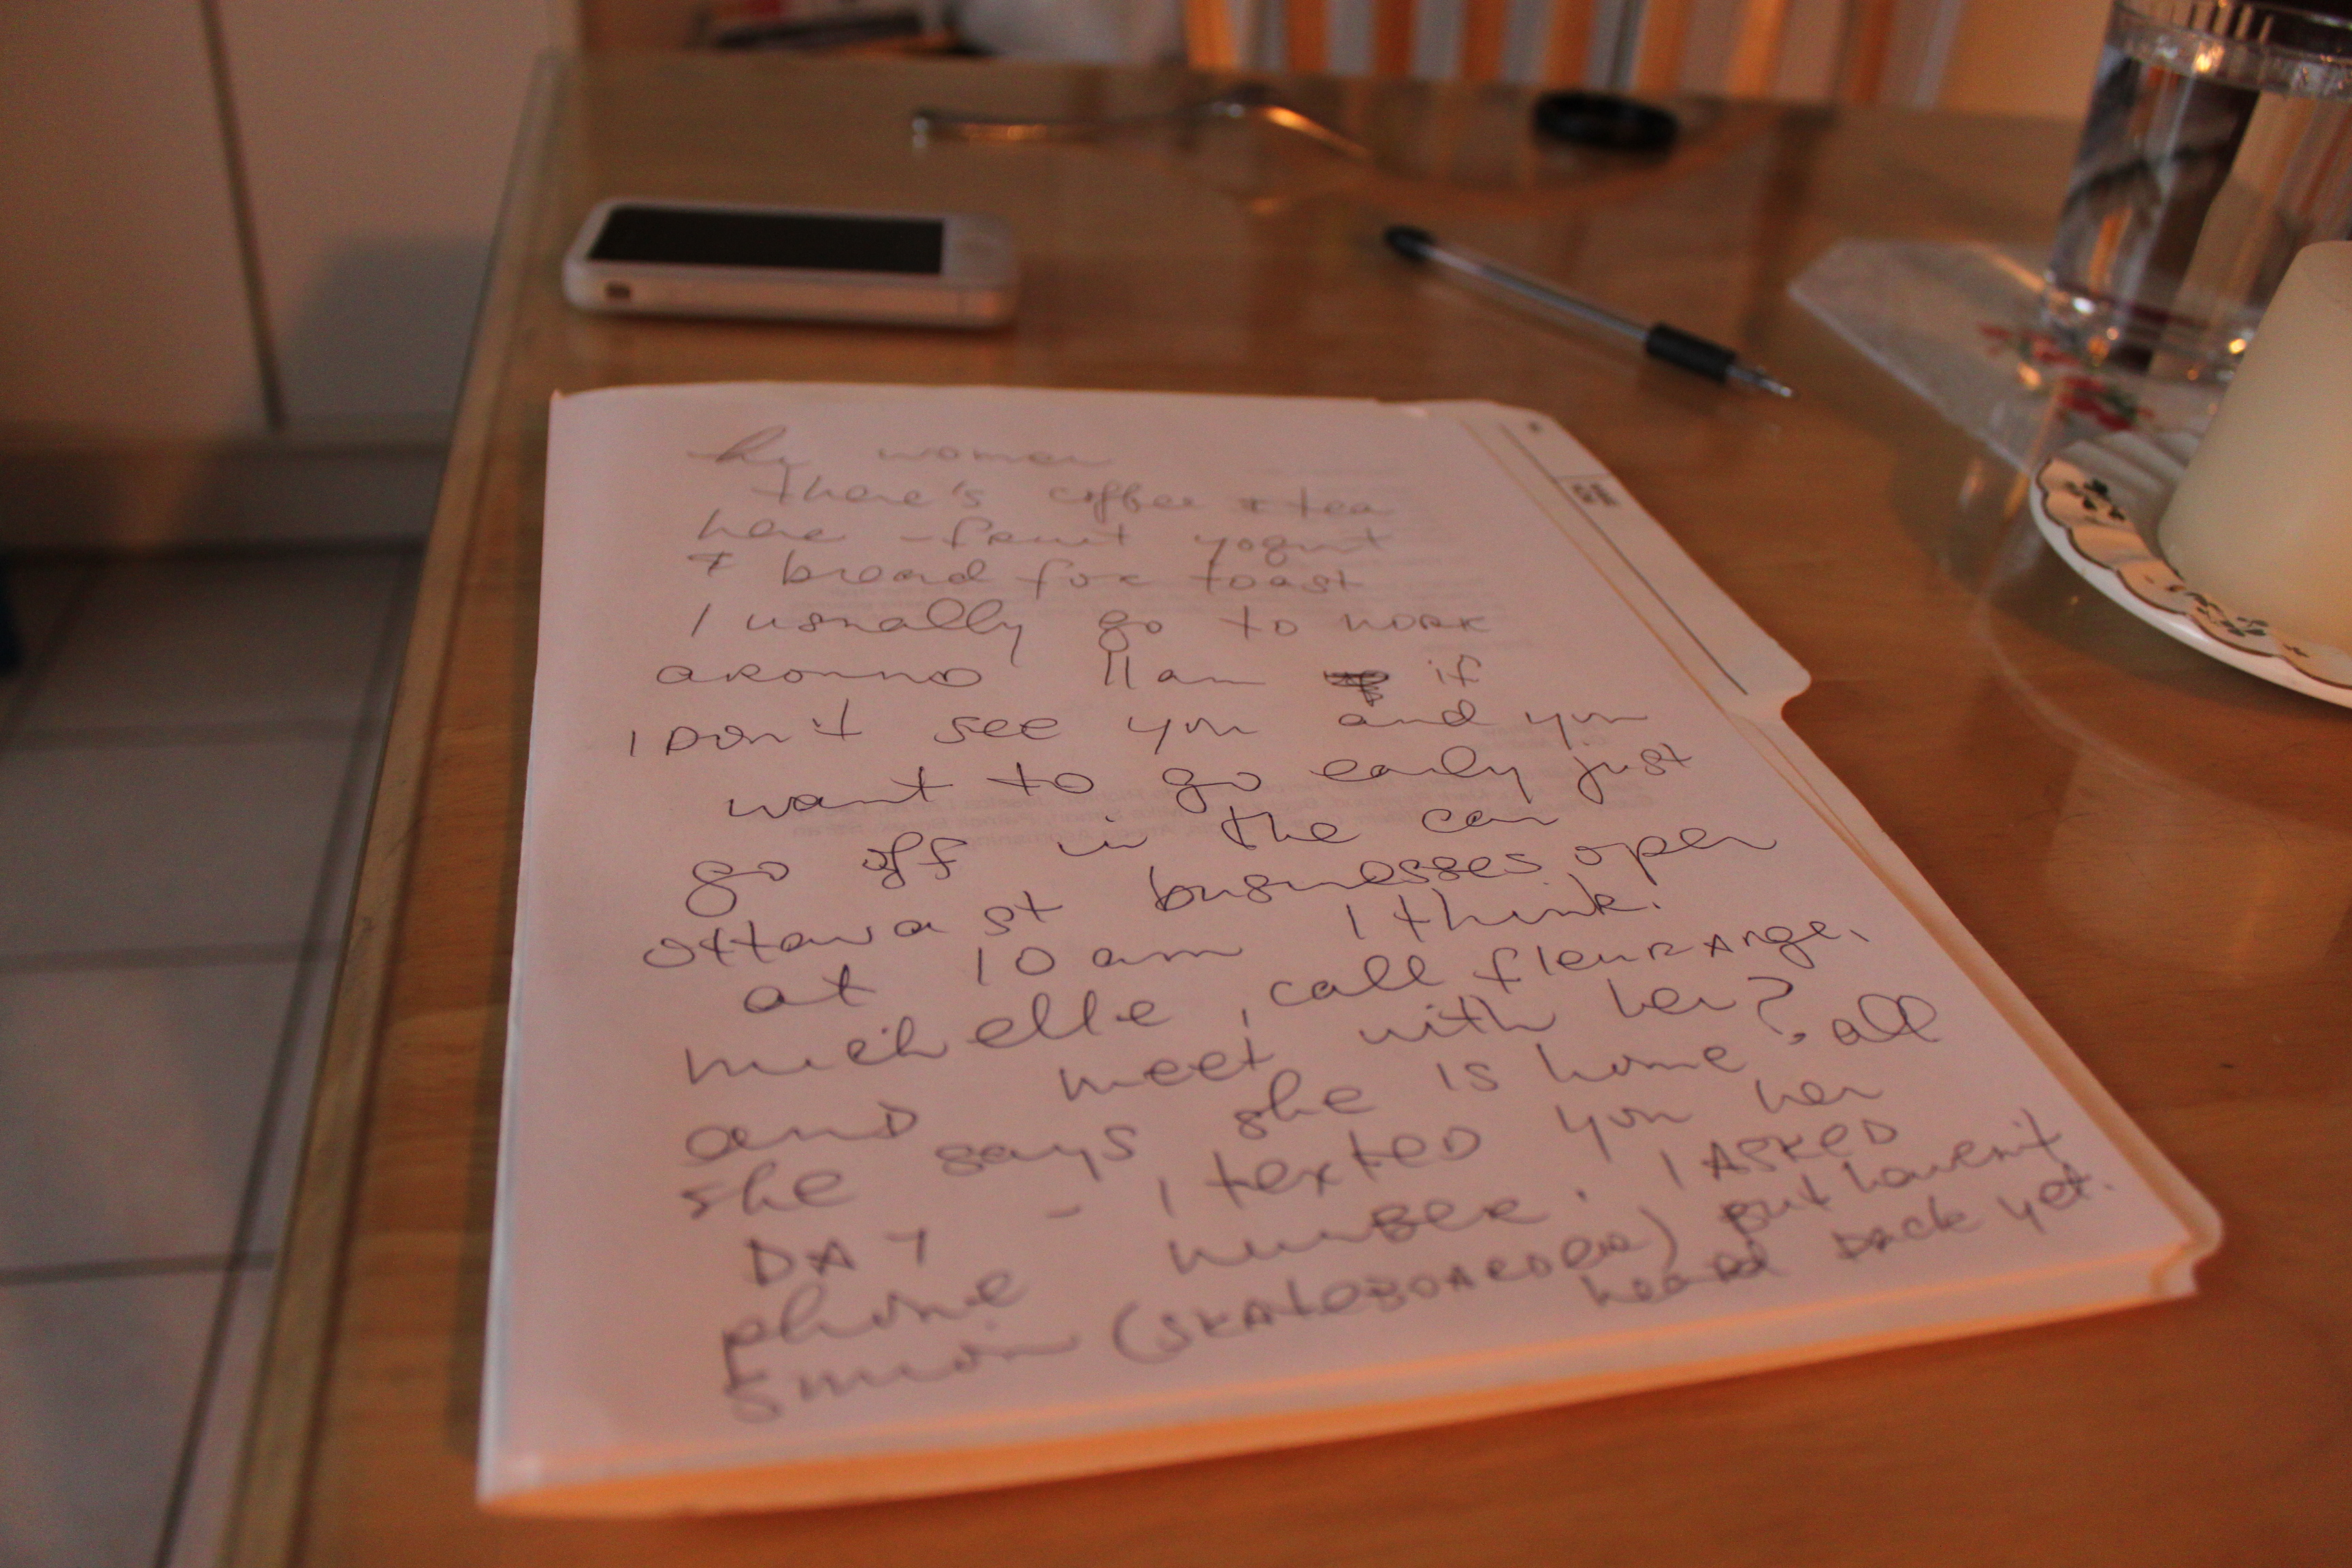 hi women
there's coffee + tea
here - fruit yogurt
+ bread for toast
I usually go to work
around 11am if
I Don't see you and you
want to go early just
go off in the car
Ottawa st businesses open
at 10 am I think.
michelle, call fleurange,
and meet with her?
she says she is home all
DAY - I texted you her
phone number. I ASKED
Simon (SKATEBOARDER) but haven't
heard back yet.